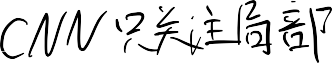 CNN只关注局部